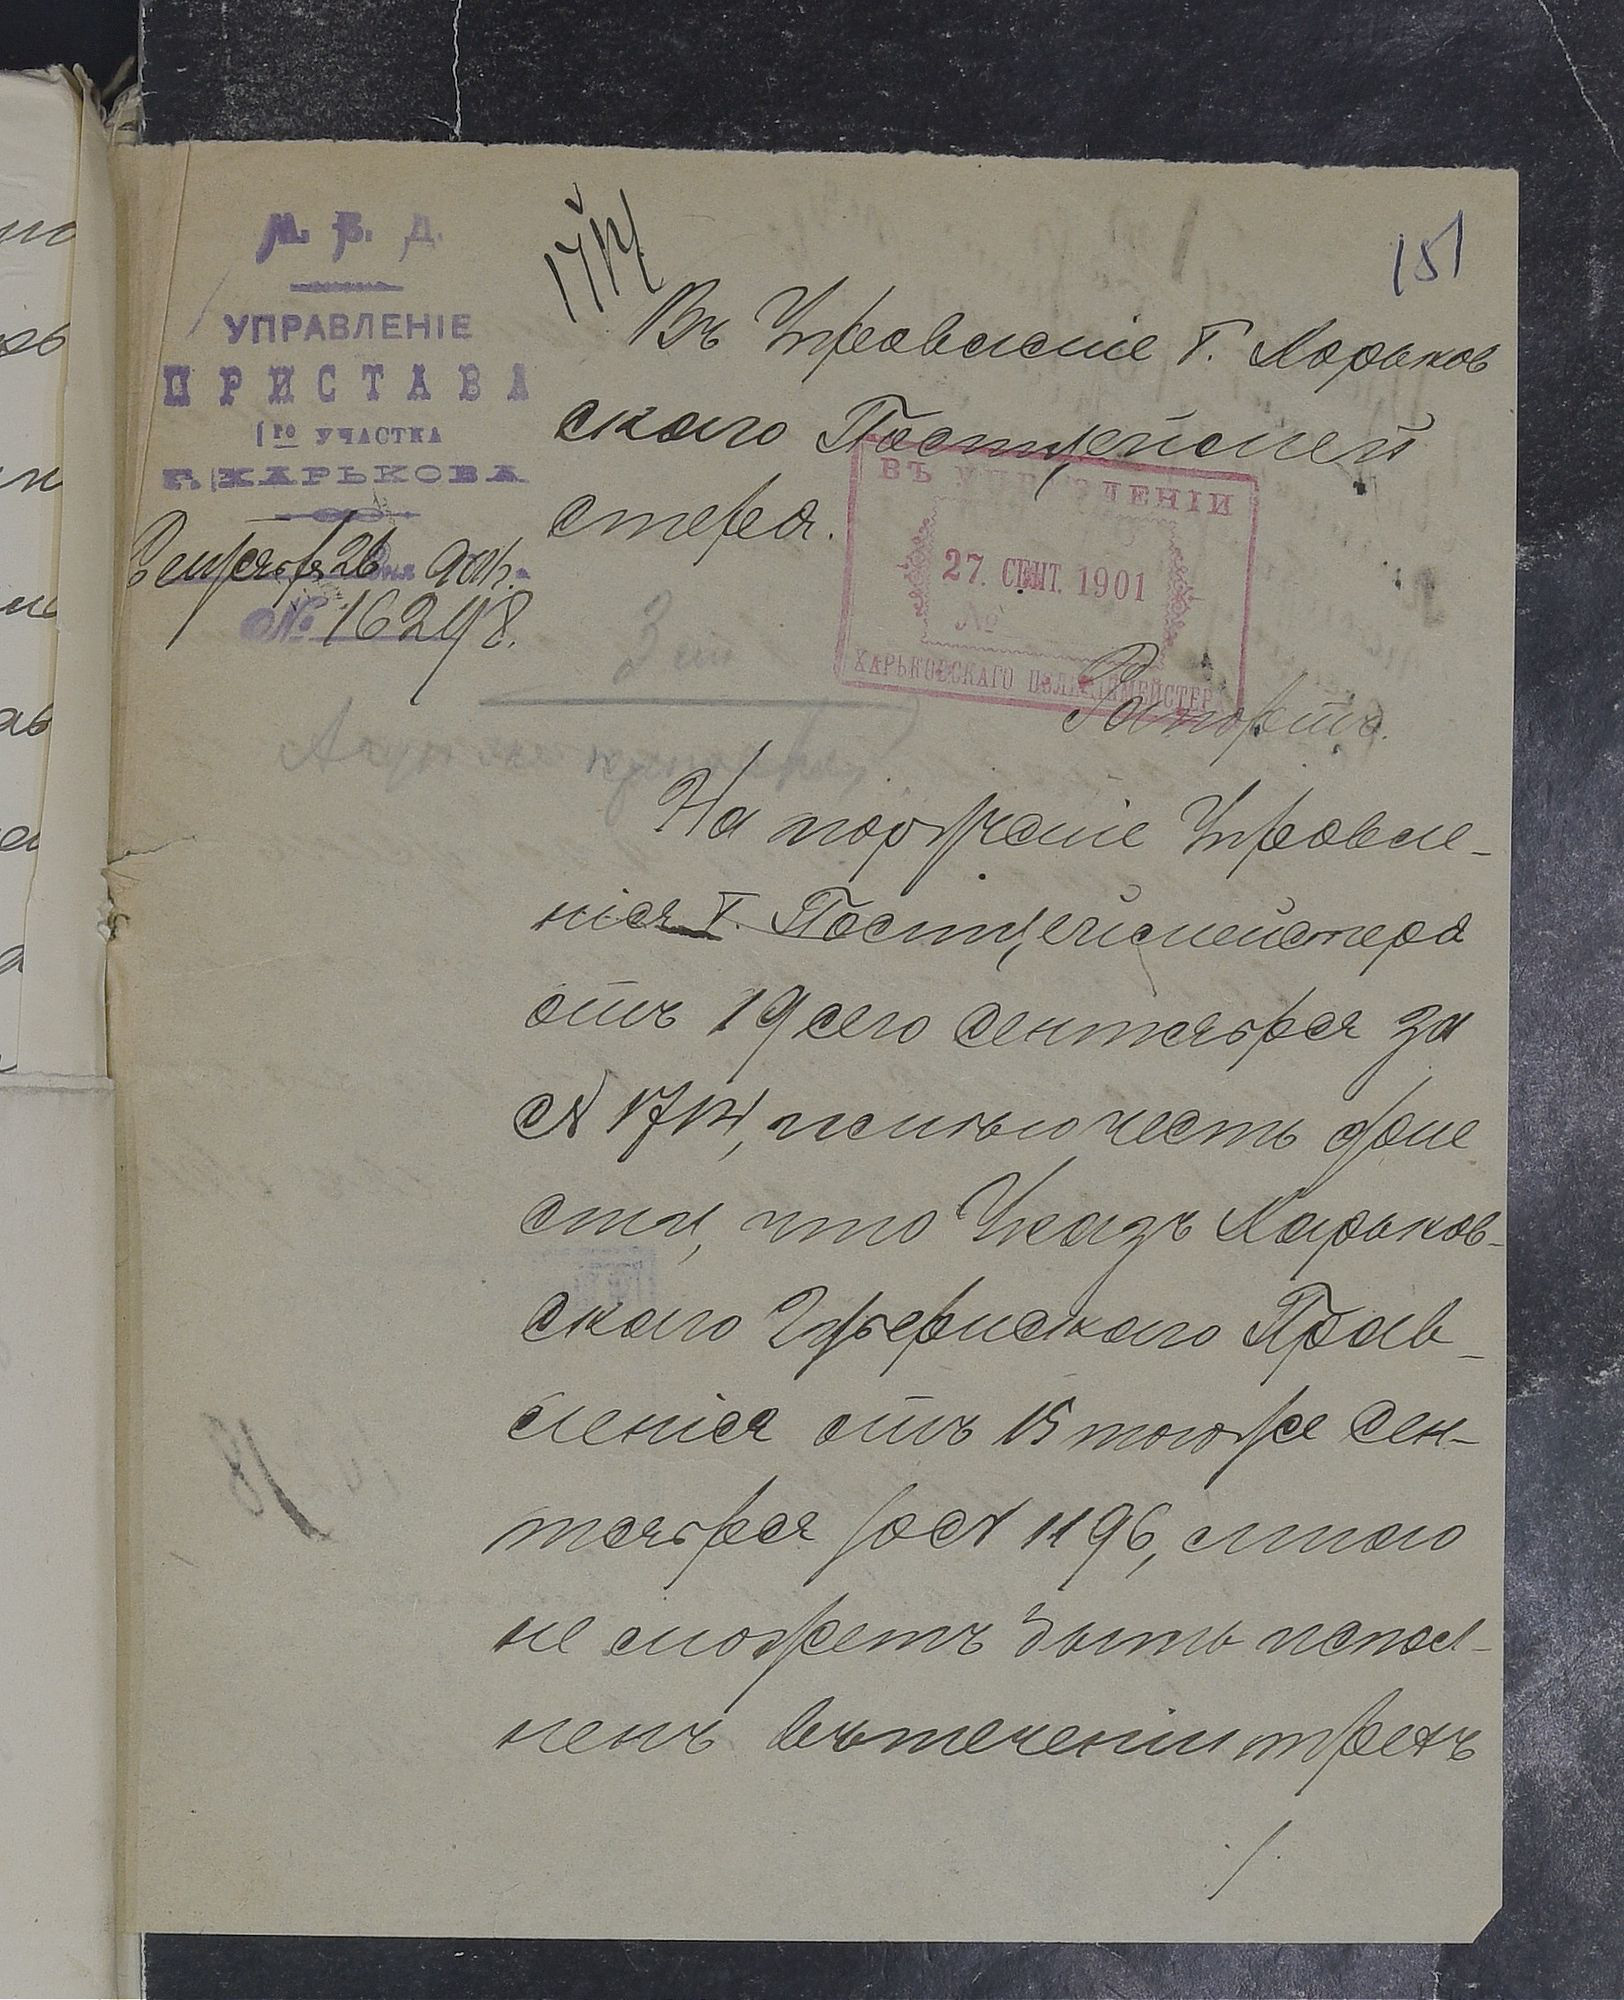 М. В. Д.
УПРАВЛЕНІЕ
ПРИСТАВА
1го УЧАСТКА
Г. ХАРЬКОВА
Сентября 26 дня 1901 г.
№ 16298.
151
Въ Управленіе Г. Харьков
скаго Полицеймей
стера.
ВЪ УПРАВЛЕНІИ
27. СЕНТ. 1901
№
ХАРЬКОВСКАГО ПОЛИЦІЙМЕЙСТЕР
Рапортъ.
На порученіе Управле-
нія Г. Полицеймейстера
отъ 19 сего Сентября за
№ имѣю честь доне
сти, что Указъ Харьков-
скаго Губернскаго Прав-
ленія отъ 15 того же Сен-
тября за № 1196, мною
не можетъ быть испол-
ненъ въ теченіи трехъ